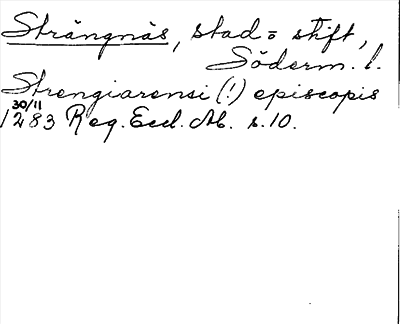 Strängnäs, stad = stift,
Söderm. l.
Strengiarensi (!) episcopis
30/11
1283 Reg. Eccl. Ab. s. 10.